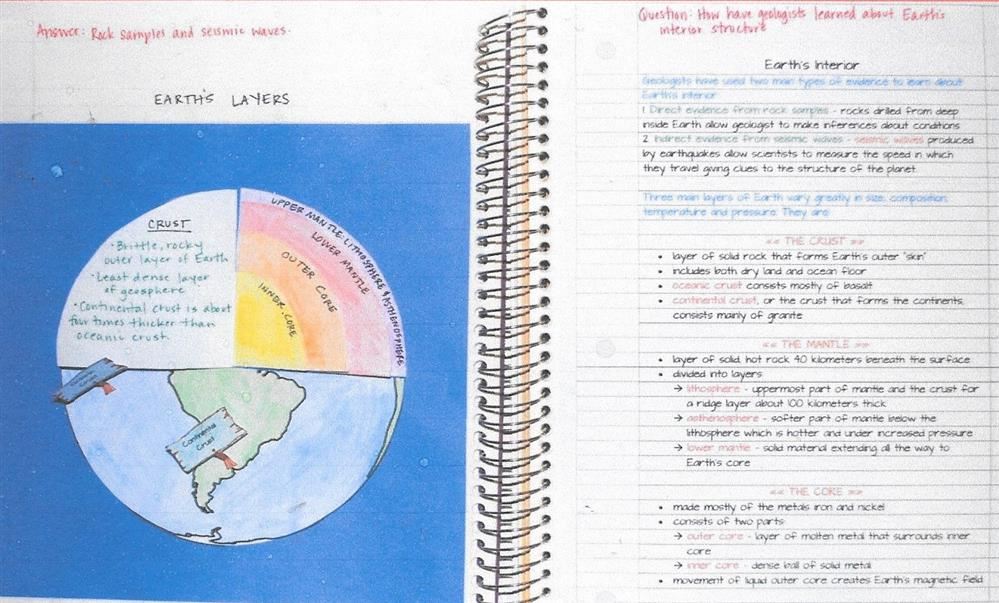 Answer: Rock samples and seismic waves.
EARTH'S LAYERS
CRUST
• Brittle, rocky
outer layer of Earth
• Least dense layer
of geosphere
• Continental crust is about
four times thicker than
oceanic crust.
UPPER MANTLE: LITHOSPHERE & ASTHENOSPHERE
LOWER MANTLE
OUTER CORE
INNER CORE
Crust
Continental
Crust
Question: How have geologists learned about Earth's
interior structure
Earth's Interior
Geologists have used two main types of evidence to learn about
Earth's interior
1. Direct evidence from rock samples - rocks drilled from deep
inside Earth allow geologist to make inferences about conditions
2. Indirect evidence from seismic waves - seismic waves produced
by earthquakes allow scientists to measure the speed in which
they travel giving clues to the structure of the planet.
Three main layers of Earth vary greatly in size, composition,
temperature and pressure. They are
«« THE CRUST »»
• layer of solid rock that forms Earth's outer "skin"
• includes both dry land and ocean floor
• oceanic crust consists mostly of basalt
• continental crust, or the crust that forms the continents,
consists mainly of granite
«« THE MANTLE »»
• layer of solid, hot rock 40 kilometers beneath the surface
• divided into layers
→ lithosphere - uppermost part of mantle and the crust for
a ridge layer about 100 kilometers thick
→ asthenosphere - softer part of mantle below the
lithosphere which is hotter and under increased pressure
→ lower mantle - solid material extending all the way to
Earth's core
«« THE CORE »»
• made mostly of the metals iron and nickel
• consists of two parts
→ outer core - layer of molten metal that surrounds inner
core
→ inner core - dense ball of solid metal
• movement of liquid outer core creates Earth's magnetic field